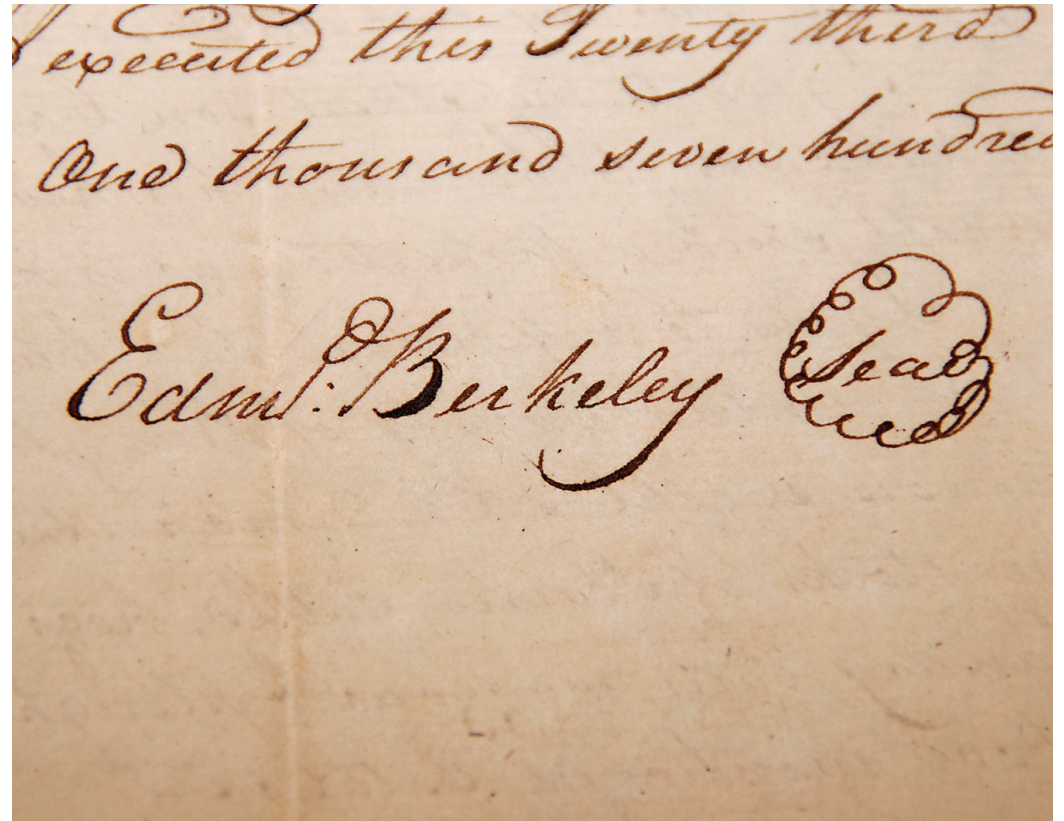 executed this Twenty third
One thousand seven hundred
Edmd: Berkeley Seal